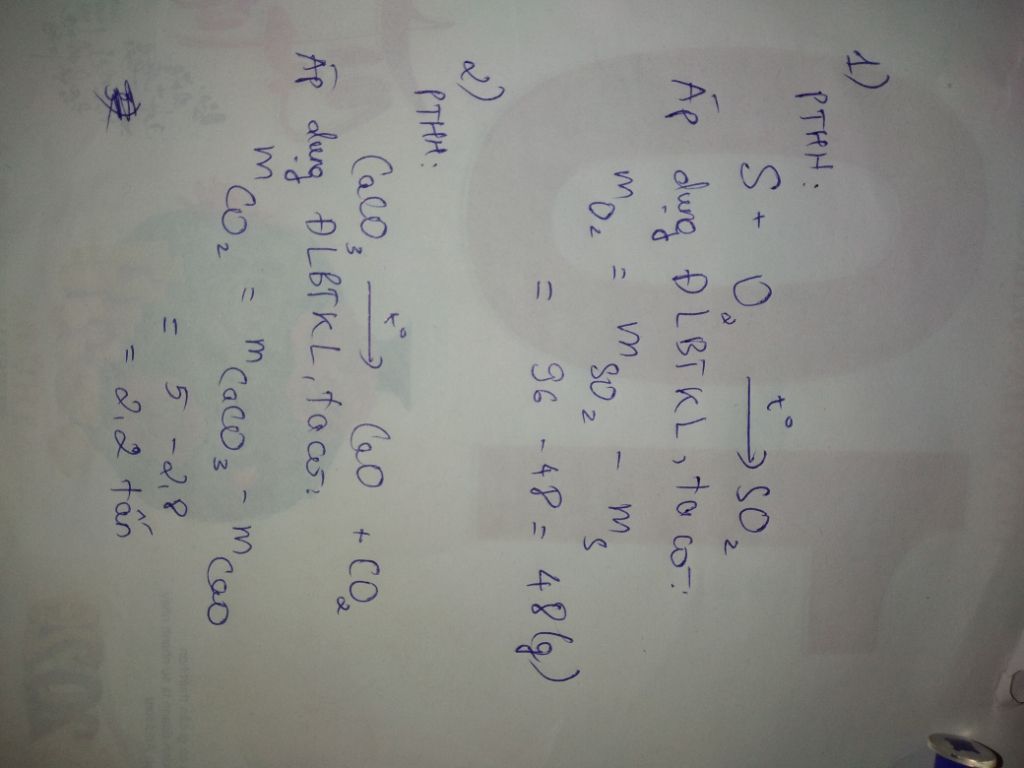 1)
PTHH:
S + O₂ —t°→ SO₂
Áp dụng ĐLBTKL, ta có:
m O₂ = m SO₂ - m S
= 96 - 48 = 48(g)
2)
PTHH:
CaCO₃ —t°→ CaO + CO₂
Áp dụng ĐLBTKL, ta có:
m CO₂ = m CaCO₃ - m CaO
= 5 - 2,8
= 2,2 tấn